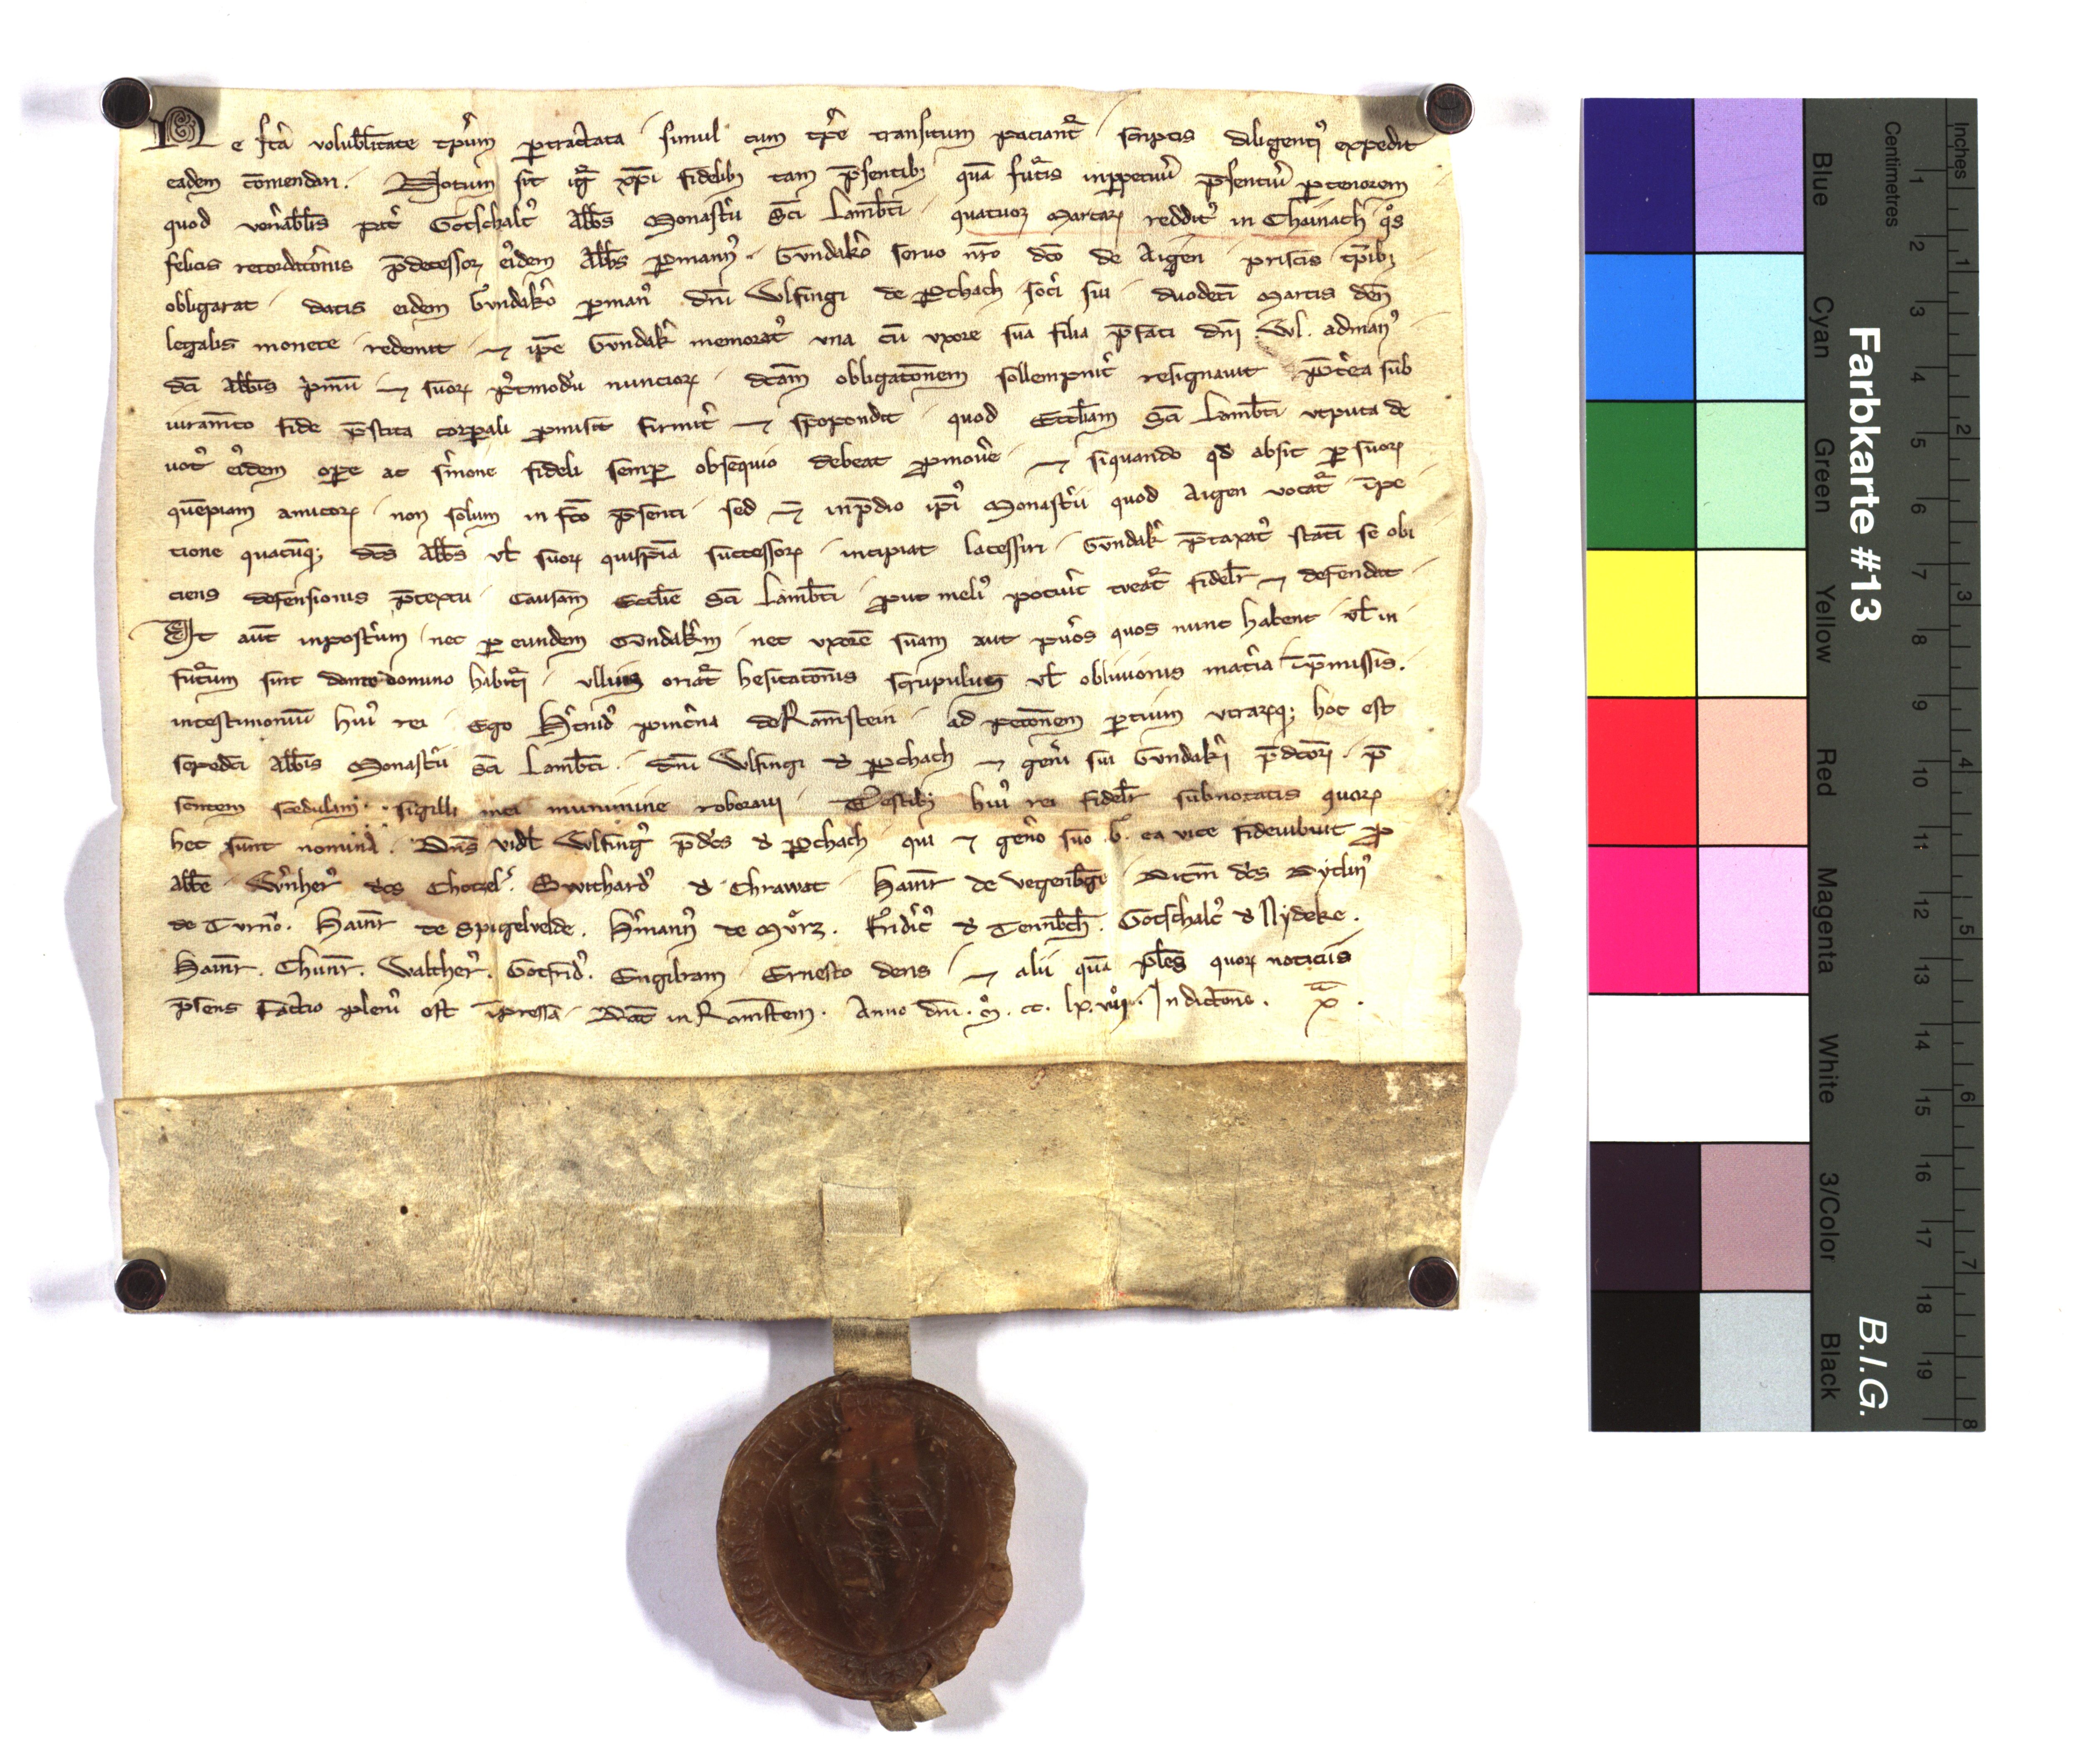 Ne fc̄a volubilitate tꝑm ꝑtractata simul cum tꝑe transitum paciant᷑ scriptis diligenti᷒ expedit
eadem cōmendari. Notum sit ig᷑ xp̄i fidelibꝫ tam p̄sentibꝫ quā futis inppetuū p̄sentiū ꝑ tenorem
quod ven̄abilis pat̄ Gotschalc᷒ abbs Monast̄ii Sc̄i Lamb̄ti quatuor Marcaꝝ reddit᷒ in Chainach qͦs
felicis recordac̄onis p̄decessor ei᷒dem Abb̄s ꝑmann᷒ Gundak̄o seruo nr̄o dc̄o de Aigen priscis tꝑibꝫ
obligarat datis eidem Gundak̄o ꝑ man᷒ dn̄i Wlfingi de Pchach soc̄i sui duodeci Marcis den̄
legalis monete redemit ⁊ ip̄e Gundak̄ memorat᷒ vna cū vxore sua filia p̄fati dn̄i Wl. ad man᷒
dc̄i abb̄is p̄mū ⁊ suoꝝ p᷒tmodū nuncioꝝ dc̄am obligac̄onem sollempnit̄ resignauit p̄t̄ea sub
iuram̄to fide p̄stita corꝑali ꝓmisit firmit̄ ⁊ spopondit quod Eccl̄iam Sc̄i Lamb̄ti vtputa de
uot᷒ ei᷒dem oꝑe ac s̄mone fideli semꝑ obsequio debeat ꝓmou̅e ⁊ siquando qd absit ꝑ suoꝝ
quēpiam amicoꝝ non solum in fc̄o p̄senti sed ⁊ inp̄dio ip̄i᷒ Monast̄ii quod Aigen vocat᷑ īpe
tione quacūqꝫ dc̄s Abb̄s vl̄ suoꝝ quispiā successoꝝ incipiat lacessiri Gundak̄ p̄taxat᷒ statī se obi
ciens defensionis p̄textu causam Eccl̄ie Sc̄i Lamb̄ti ꝓut meli᷒ potuit tueat᷑ fidelr̄ ⁊ defendat
Vt aūt inpost̄um nec ꝑ eundem Gundak̄m nec vxorē suam aut pu̅os quos nunc habent vl̄ in
futum sunt domino habituri ullius oriat᷑ hesitac̄onis scrupulus vl̄ obliuionis mat̄ia īp̄missis.
intestimoniū hui᷒ rei Ego H̄tnid᷒ pinc̄na de Ramstein ad petic̄onem ꝑtium vtraꝝqꝫ hoc est
sepedc̄i Abb̄is Monast̄ii Sc̄i Lamb̄ti. dn̄i Wlfingi d̄ Pchach ⁊ gen̄i sui Gundak̄i p̄dc̄oꝝ p̄
sentem scedulam sigilli mei munimine roboraui Testibꝫ hui᷒ rei fidelr̄ subnotatis quoꝝ
hec sunt nomina. Dn̄s vidl̄ Wlfing᷒ p̄dc̄s d̄ Pchach qui ⁊ gen̄o suo G. ea vice fideiubuit ꝓ
abb̄e Wn̄her᷒ dc̄s Chotzel. Swithard᷒ d̄ Chrawat Hainr̄ de Vegenb̄ge Ditm̄ dc̄s
de Turno. Hainr̄ de Spigelvelde. H̄mann᷒ de Mūrz. Fridic᷒ d̄ Gotschalc᷒ d̄ Nydeke.
Hainr̄. Chunr̄. Walther᷒. Gotfrid᷒. Engilram Ernesto dens ⁊ alii quā pl̄es quoꝝ noticiis
p̄sens Factio plen̄ est īpressa Dat̄ in Ramstein. Anno dn̄i. M. cc. lx. viij. Indictōne. x̄.
Farbkarte #13
B.I.G.
Centimetres
Inches
Blue
Cyan
Green
Yellow
Red
Magenta
White
3/Color
Black
1 2 3 4 5 6 7 8 9 10 11 12 13 14 15 16 17 18 19
1 2 3 4 5 6 7 8